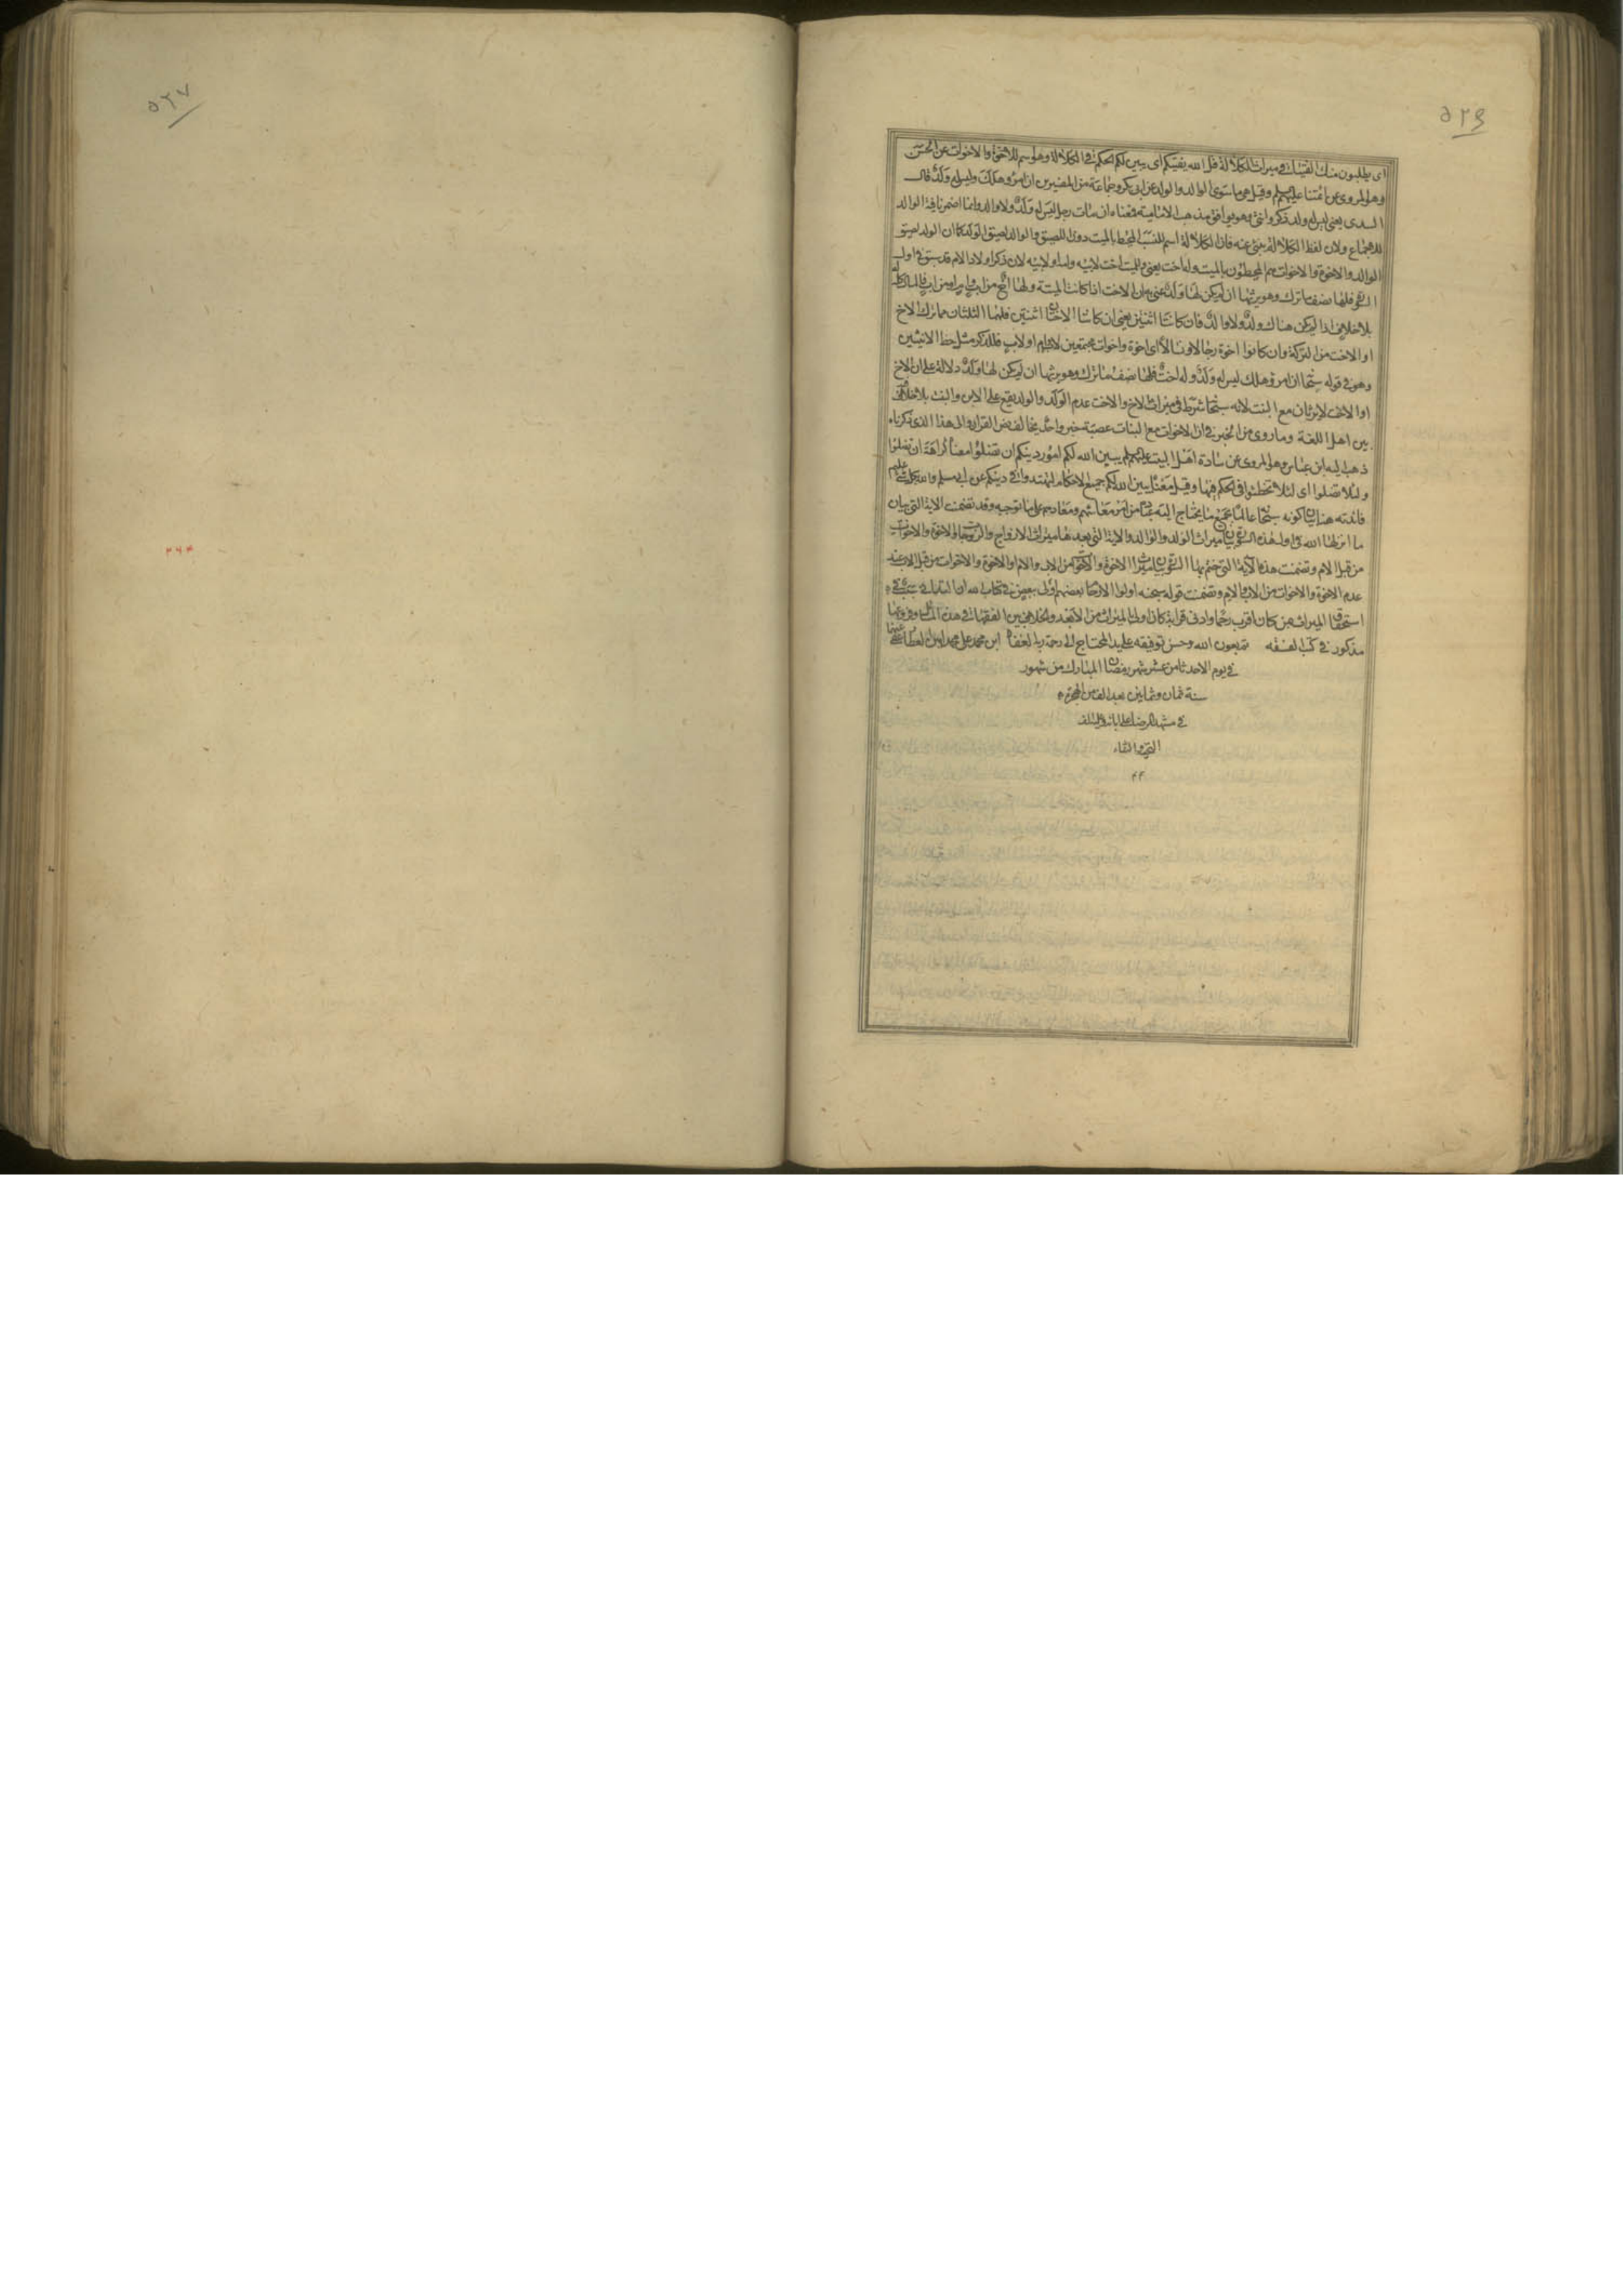 ٥٢٦
اى يطلبون منك الفتيا فى ميراث الكلالة قل الله يفتيكم اى يبين لكم الحكم فى الكلالة وهو اسم للاخوة والاخوات عن الحسن
وهو المروى عن ائمتنا عليهم وقيل هى ما سوى الوالد والولد عن ابى بكر وجماعة من المفسرين ان امرؤ هلك وليس له ولد قال
السدى يعنى ليس له ولد ذكر وانثى وهو يوافق مذهب الامامية فمعناه ان مات رجل ليس له ولد ولا والد وانما اضمرنا فيه الوالد
للاجماع ولان لفظ الكلالة ينبئ عنه فان الكلالة اسم للنسب المحيط بالميت دون اللصيق والوالد لصيق الولد كما ان الولد لصيق
الوالد والاخوة والاخوات هم المحيطون بالميت وله اخت يعنى وللميت اخت لابيه وامه او لابيه لان ذكر اولاد الام قد سبق فى اول
فلها نصف ما ترك وهو يرثها ان لم يكن لها ولد عنى به ان الاخت اذا كانت الميتة ولها اخ من اب وام او من اب فالمال كله له
بلا خلاف اذا لم يكن هناك ولد ولا والد فان كانتا اثنتين يعنى ان كانتا الاختان اثنتين فلهما الثلثان مما ترك الاخ
او الاخت من التركة وان كانوا اخوة رجالا ونساء اى اخوة واخوات مجتمعين لاب وام او لاب فللذكر مثل حظ الانثيين
وهو فى قوله ان امرؤ هلك ليس له ولد وله اخت فلها نصف ما ترك وهو يرثها ان لم يكن لها ولد دلالة على ان الاخ
او الاخت لا يرثان مع البنت لانه شرط فى ميراث الاخ والاخت عدم الولد والولد يقع على الابن والبنت بلا خلاف
بين اهل اللغة وما روى من الخبر فى ان الاخوات مع البنات عصبة خبر واحد يخالف نص القران والى هذا الذى ذكرناه
ذهب اليه ابن عباس وهو المروى عن سادة اهل البيت عليهم يبين الله لكم امور دينكم ان تضلوا معناه كراهة ان تضلوا
ولئلا تضلوا اى لئلا تخطئوا فى الحكم فيها وقيل معناه يبين الله لكم جميع الاحكام لتهتدوا فى دينكم عن ابى مسلم والله بكل شئ عليم
فائدته هنا بيان كونه عالما بجميع ما يحتاج اليه عباده من امر معاشهم ومعادهم على ما توجبه وقد تضمنت الاية التى بيان
ما انزلها الله فى اول هذه بيان ميراث الولد والوالد والاية التى بعدها ميراث الازواج والزوجات والاخوة والاخوات
من قبل الام وتضمنت هذه الآية التى ختم بها بيان ميراث الاخوة والاخوات من الاب والام والاخوة والاخوات من قبل الاب عند
عدم الاخوة والاخوات من الاب والام وتضمنت قوله سبحنه اولوا الارحام بعضهم اولى ببعض فى كتاب الله ان تدانى القربى سبب فى
استحقاق الميراث فمن كان اقرب رحما وادنى قرابة كان اولى بالميراث من الابعد والخلاف بين الفقهاء فى هذه المسائل وفروعها
مذكور فى كتب الفقه تم بعون الله وحسن توفيقه على يد المحتاج الى رحمة ربه الغفار ابن محمد على محمد
فى يوم الاحد ثامن عشر شهر رمضان المبارك من شهور
سنة ثمان وثمانين بعد الالف من الهجرة
فى مشهد الرضا على
التحية والثناء
٥٢٧